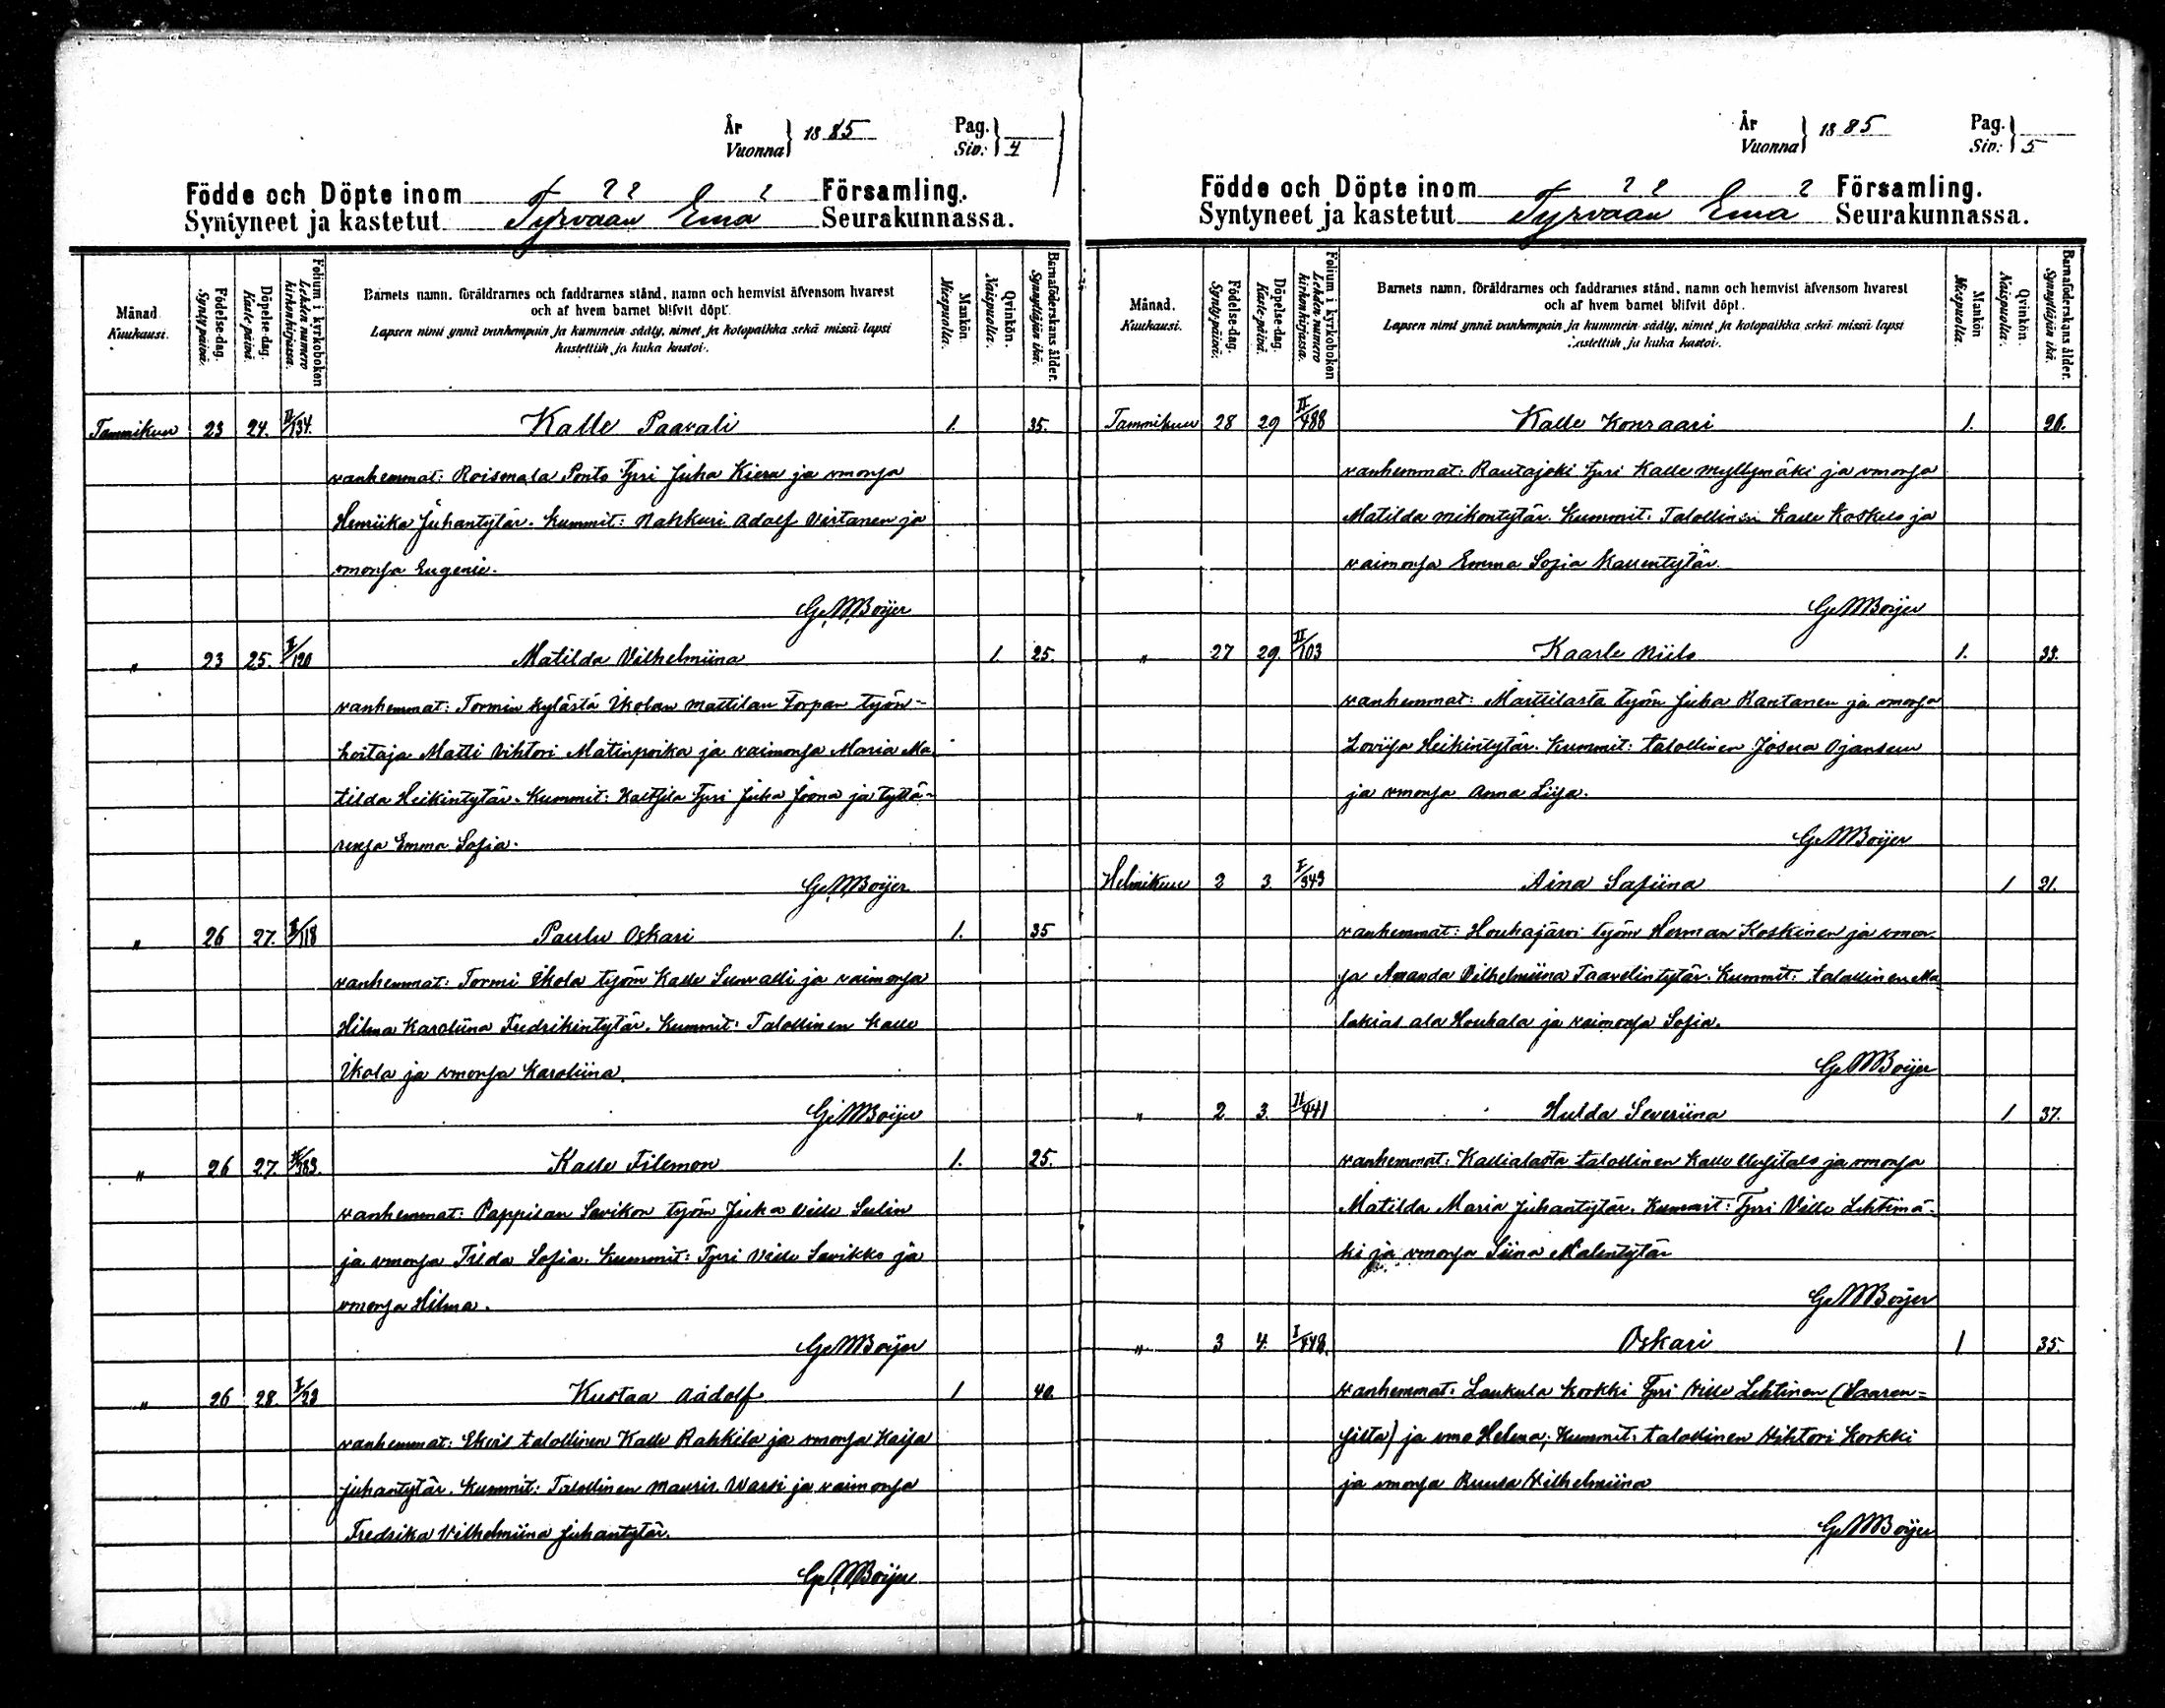 År
Vuonna 1885 Pag.
Siv: 4
Födde och Döpte inom Församling.
Syntyneet ja kastetut Tyrvään Emä Seurakunnassa.
Månad. Kuukausi.
Födelse-dag. Synty-päivä.
Döpelse-dag. Kaste-päivä.
Folium i kyrkoboken Lehden numero kirkonkirjassa.
Barnets namn, föräldrarnes och faddrarnes stånd, namn och hemvist äfvensom hvarest
och af hvem barnet blifvit döpt.
Lapsen nimi ynnä vanhempain ja kummein sääty, nimet ja kotopaikka sekä missä lapsi
kastettiin ja kuka kastoi.
Mankön. Miespuolia.
Qvinkön. Naispuolia.
Barnaföderskans ålder. Synnyttäjän ikä.
Tammikuu 23 24. II/134. Kalle Paavali 1. 35.
vanhemmat: Roismala Ponto Tpri Juha Kiera ja vmonsa
Henriika Juhantytär. Kummit: Nahkuri Adolf Virtanen ja
vmonsa Eugenie.
G. M Boijer
" 23 25. I/120 Matilda Vilhelmiina 1. 25.
vanhemmat: Tormin kylästä Ikolan Mattilan Torpan työn-
hoitaja Matti Vihtori Matinpoika ja vaimonsa Maria Ma
tilda Heikintytär. Kummit: Tpri Juha Joona ja tyttä-
rensa Emma Sofia.
G. M Boijer
" 26 27. I/118 Paulu Oskari 1. 35
vanhemmat: Tormi Ikola työm Kalle Sunvalli ja vaimonsa
Hilma Karoliina Fredrikintytär. Kummit: Talollinen Kalle
Ikola ja vmonsa Karoliina.
G. M Boijer
" 26 27. 383. Kalle Filemon 1. 25.
vanhemmat: Pappilan Savikon työm Juha Ville Selin
ja vmonsa Tilda Sofia. Kummit: Tpri Ville Savikko ja
vmonsa Hilma.
G. M Boijer
" 26 28. I/23 Kustaa Aadolf 1 40.
vanhemmat: talollinen Kalle Rahkila ja vmonsa Kaisa
Juhantytär. Kummit: Talollinen Mauris Warvi ja vaimonsa
Fredrika Vilhelmiina Juhantytär.
G. M Boijer
År
Vuonna 1885 Pag.
Siv: 5
Födde och Döpte inom Församling.
Syntyneet ja kastetut Tyrvään Emä Seurakunnassa.
Månad. Kuukausi.
Födelse-dag. Synty-päivä.
Döpelse-dag. Kaste-päivä.
Folium i kyrkoboken Lehden numero kirkonkirjassa.
Barnets namn, föräldrarnes och faddrarnes stånd, namn och hemvist äfvensom hvarest
och af hvem barnet blifvit döpt.
Lapsen nimi ynnä vanhempain ja kummein sääty, nimet ja kotopaikka sekä missä lapsi
kastettiin ja kuka kastoi.
Mankön Miespuolia.
Qvinkön. Naispuolia.
Barnaföderskans ålder. Synnyttäjän ikä.
Tammikuu 28 29 II/488 Kalle Konraari 1. 26.
vanhemmat: Rautajoki Tpri Kalle Myllymäki ja vmonsa
Matilda Mikontytär. Kummit: Talollinen Kalle Koskelo ja
vaimonsa Emma Sofia Kallentytär.
G. M Boijer
" 27 29. II/103 Kaarle Niilo 1. 33.
vanhemmat: Marttilasta työm Juha Rantanen ja vmonsa
Loviisa Heikintytär. Kummit: talollinen Josua Ojansuu
ja vmonsa Anna Liisa.
G. M Boijer
Helmikuu 2 3. I/343 Aina Safiina 1 21.
vanhemmat: Houhajärvi työm Herman Koskinen ja vmon
sa Amanda Vilhelmiina Taavelintytär. Kummit: talollinen Ma
lakias ala Houhala ja vaimonsa Sofia.
G. M Boijer
" 2 3. II/441 Hulda Severiina 1 37.
vanhemmat: Kallialasta talollinen Kalle Uusitalo ja vmonsa
Matilda Maria Juhantytär. Kummit: Tpri Ville Lehtimä-
ki ja vmonsa Siina Malentytär
G. M Boijer
" 3 4. I/448. Oskari 1 35.
vanhemmat: Laukula Korkki Tpri Ville Lehtinen (Saaren=
silta) ja vmo Helena; Kummit: talollinen Vihtori Korkki
ja vmonsa Ruusa Vilhelmiina
G. M Boijer